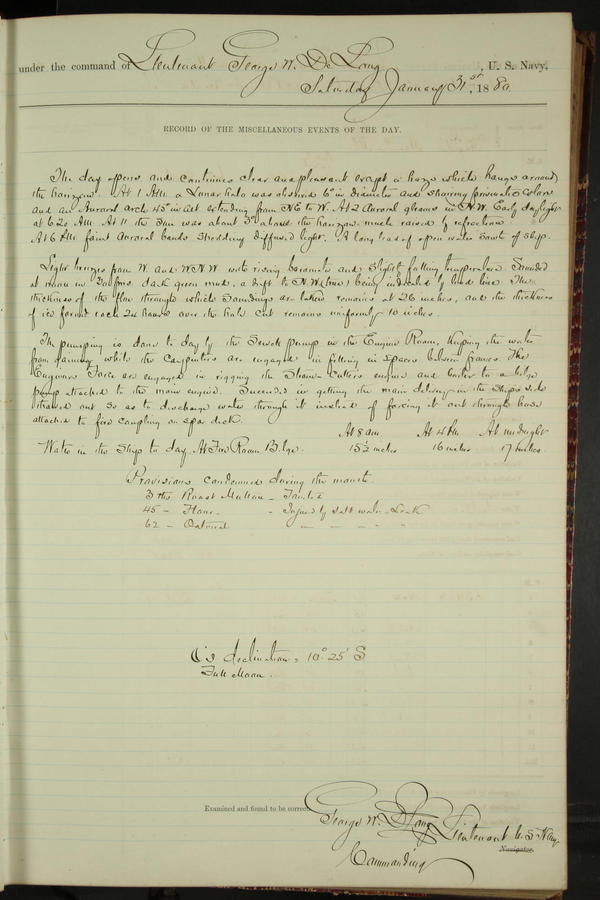 under the command of Lieutenant George W. De Long, U. S. Navy,
Saturday January 31st, 1880
RECORD OF THE MISCELLANEOUS EVENTS OF THE DAY.
The day opens and continues clear and pleasant except a haze which hangs around
the horizon. At 1 AM. a Lunar halo was observed 6° in diameter and showing prismatic colors
and an Auroral arch 45° in alt. extending from NE to W. At 2 Auroral gleams in N.W. Early daylight
at 6 AM. At 11 the Sun was about 3° above the horizon much raised by refraction.
At 6 PM faint Auroral bands shedding diffused light. A long lead of open water South of ship.
Light breezes from W. and WNW. with rising barometer and slightly falling temperature. Sounded
at noon in fms. dark green mud, a drift to N.W. (true) being indicated by lead line. The
thickness of the floe through which Soundings are taken remains at 26 inches, and the thickness
of ice formed each 24 hours over the hole cut remains uniformly 10 inches.
The pumping is done to day by the Sewell pump in the Engine Room, keeping the water
from gaining while the Carpenters are engaged in filling in spaces between frames. The
Engineers Force are engaged in rigging the Steam Cutters engine and boiler to a bilge
pump attached to the main engine. Succeeded in getting the main delivery in the Ships side
thawed out so as to discharge water through it instead of forcing it out through hose
attached to fire coupling on spar deck.
At 8 am. At 4 PM. At midnight
Water in the Ship to day At Fire Room Bilge. 15½ inches 16 inches 17 inches.
Provisions condemned during the month
3 lbs Roast Mutton - Tainted
45 - Flour - Injured by salt water - Leak
62 - Oatmeal - - - -
☾'s declination = 10° 25' S
Full Moon.
Examined and found to be correct.
George W. De Long Lieutenant U. S. Navy
Navigator.
Commanding